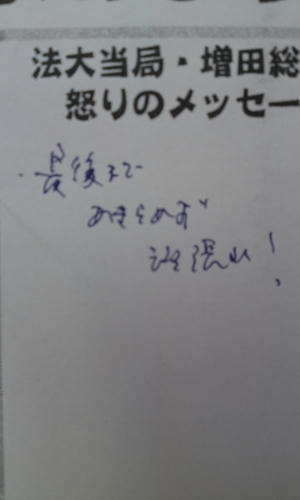 法大当局・増田総
怒りのメッセー
・最後まで
あきらめず
頑張れ!